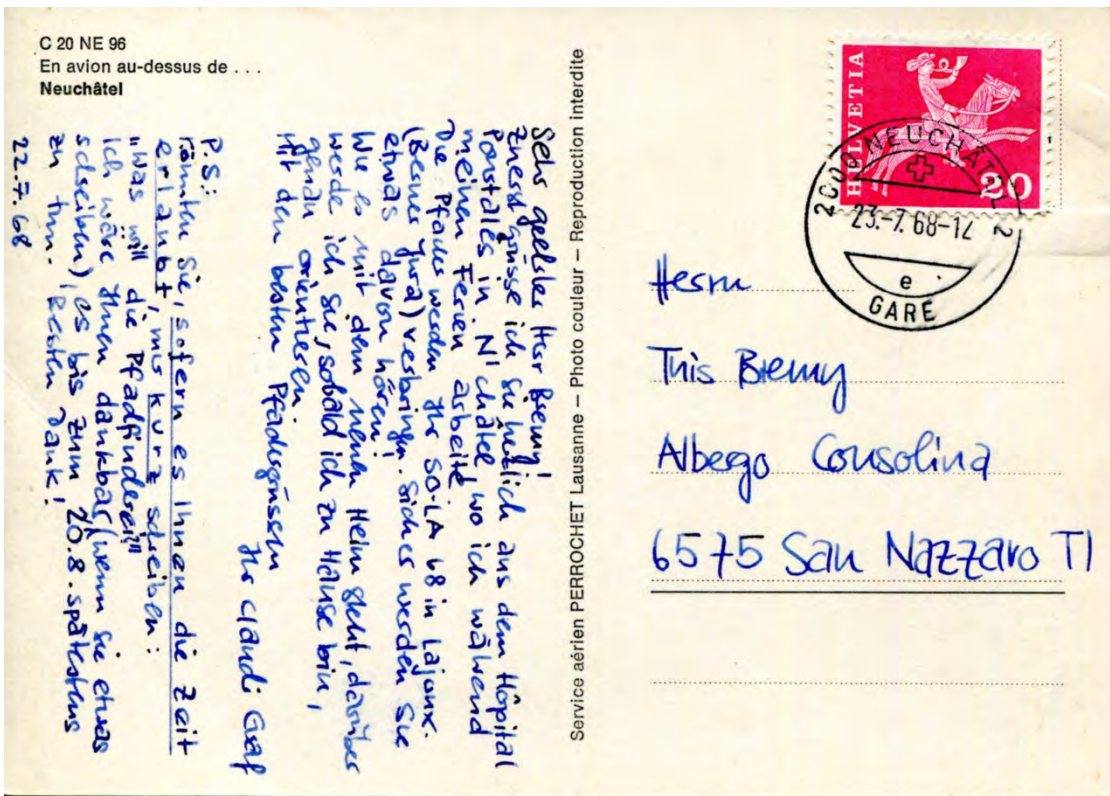 C 20 NE 96
En avion au-dessus de . . .
Neuchâtel
Service aérien PERROCHET Lausanne – Photo couleur – Reproduction interdite
HELVETIA
20
2000 NEUCHÂTEL 2
23.-7.68-12
e
GARE
Sehr geehrter Herr Bremy!
Zuerst grüsse ich Sie herzlich aus dem Hôpital
Pourtalès in N'châtel wo ich während
meinen Ferien arbeite.
Die Pfader werden Ihr SO-LA 68 in Lajoux
(Berner Jura) verbringen. Sicher werden Sie
etwas davon hören!
Wie es mit dem neuen Heim steht, darüber
werde ich Sie, sobald ich zu Hause bin,
genau orientieren.
Mit den besten Pfadergrüssen
Ihr Claudi Graf
P.S.:
Könnten Sie, sofern es Ihnen die Zeit
erlaubt, mir kurz schreiben:
"Was will die Pfadfinderei?"
Ich wäre Ihnen dankbar, (wenn Sie etwas
schreiben), es bis zum 20.8. spätestens
zu tun. Besten Dank!
22.7.68
Herrn
This Bremy
Albergo Consolina
6575 San Nazzaro TI